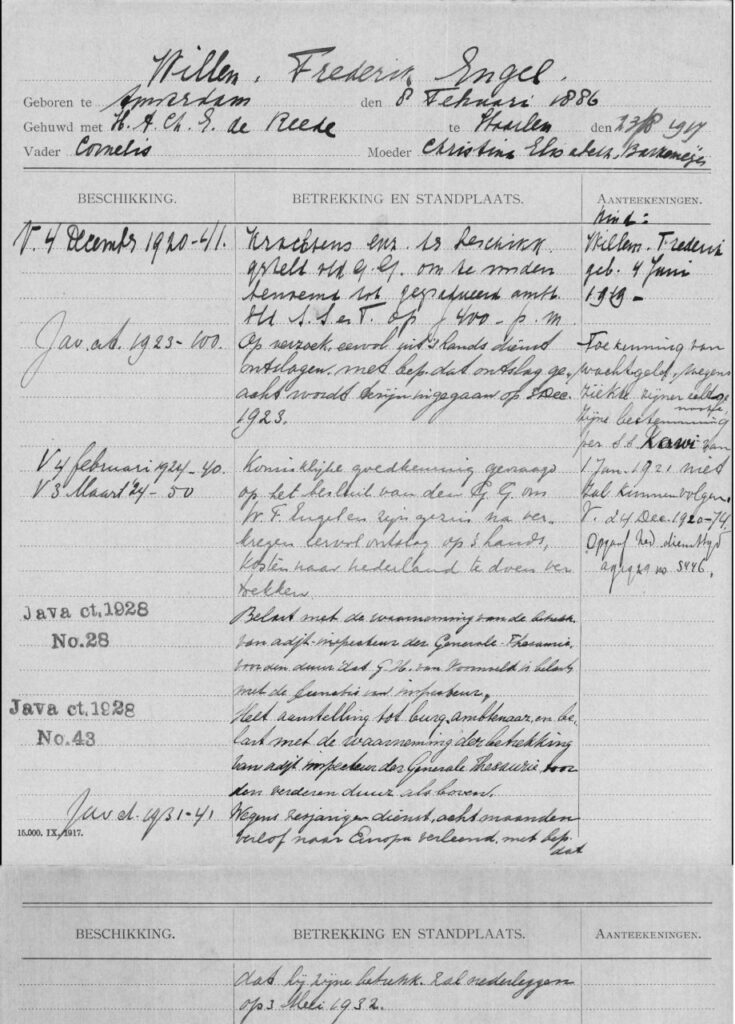 Willem Frederik Engel.
Geboren te Amsterdam den 8 Februari 1886
Gehuwd met H. A. Ch. E. de Reede te Haarlem den 23/8 1917
Vader Cornelis Moeder Christina Elisabeth
BESCHIKKING. BETREKKING EN STANDPLAATS. AANTEEKENINGEN.
V. 4 December 1920-4/1.
Krachtens enz. ter beschikk.
gesteld v/d G.G. om te worden
benoemd tot gegradueerd ambt.
b/d S.S. en T. op f 400 - p. m.
Jav. ct. 1923-100.
Op verzoek eervol uit 's lands dienst
ontslagen, met bep. dat ontslag ge-
acht wordt te zijn ingegaan op 3 Dec.
1923.
V 4 februari 1924-40.
V 3 Maart '24-50
Koninklijke goedkeuring gevraagd
op het besluit van den G. G. om
W. F. Engel en zijn gezin na ver-
kregen eervol ontslag op 's lands,
kosten naar nederland te doen ver
trekken
Java ct. 1928
No. 28
Belast met de waarneming van de betrekk.
van adjt-inspecteur der Generale-Thesaurie,
voor den duur dat G. H. van is belast
met de functie van inspecteur,
Java ct. 1928
No. 43
Met aanstelling tot burg. ambtenaar, en be-
last met de waarneming der betrekking
van adjt inspecteur der Generale Thesaurie voor
den verderen duur als boven.
Jav ct. 1931-41
Wegens zesjarigen dienst, acht maanden
verlof naar Europa verleend, met bep.
dat
Kind:
Willem Frederik
geb. 4 Juni
1919 -
Toekenning van
wachtgeld, wegens
ziekte zijner echtge
noote,
zijne bestemming
per s.s. Kawi van
1 Jan. 1921 niet
zal kunnen volgen.
V. 24 Dec. 1920-74.
Opgaaf Ned. diensttijd
no 5446.
15.000. IX. 1917.
BESCHIKKING. BETREKKING EN STANDPLAATS. AANTEEKENINGEN.
dat hij zijne betrekk. zal nederleggen
op 3 Mei 1932.